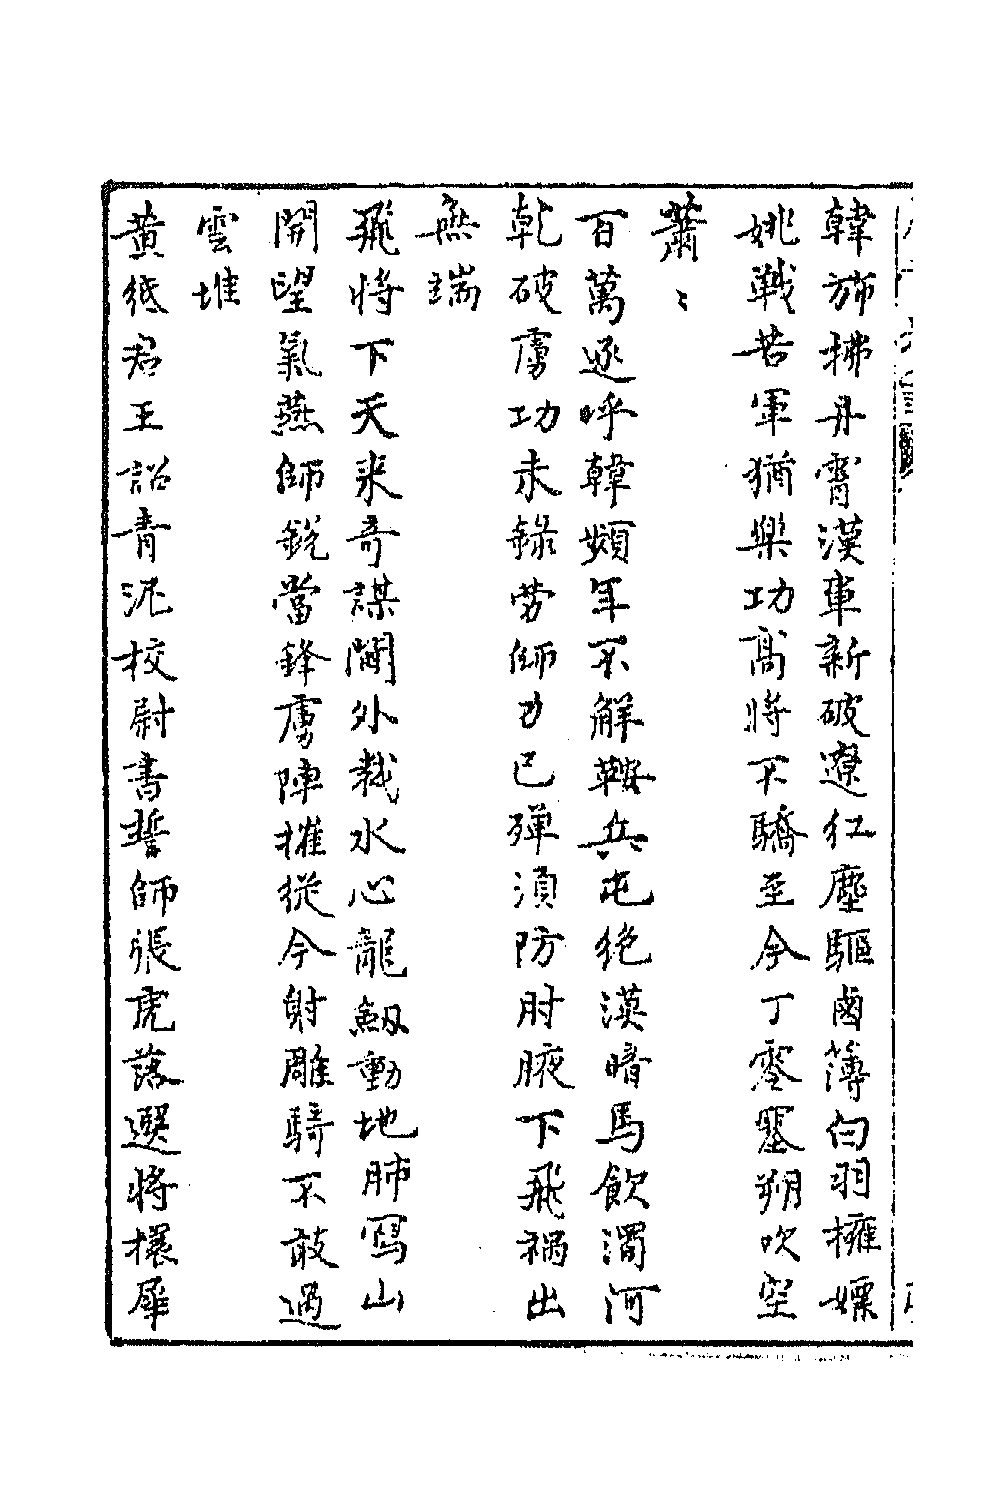 韓斾拂丹霄漢車新破遼紅塵驅鹵簿白羽擁嫖
姚戰苦軍猶樂功高將不驕至今丁零塞朔吹空
蕭〻
百萬逐呼韓頻年不解鞍兵屯絕漠暗馬飲濁河
乾破虜功未錄勞師力已殫湏防肘腋下飛禍出
無端
飛將下天来奇謀閫外裁水心龍劔動地肺寫山
開望氣燕師銳當鋒虜陣摧從今射雕騎不敢過
雲堆
黄紙君王詔青泥校尉書誓師張虎落選將櫰犀